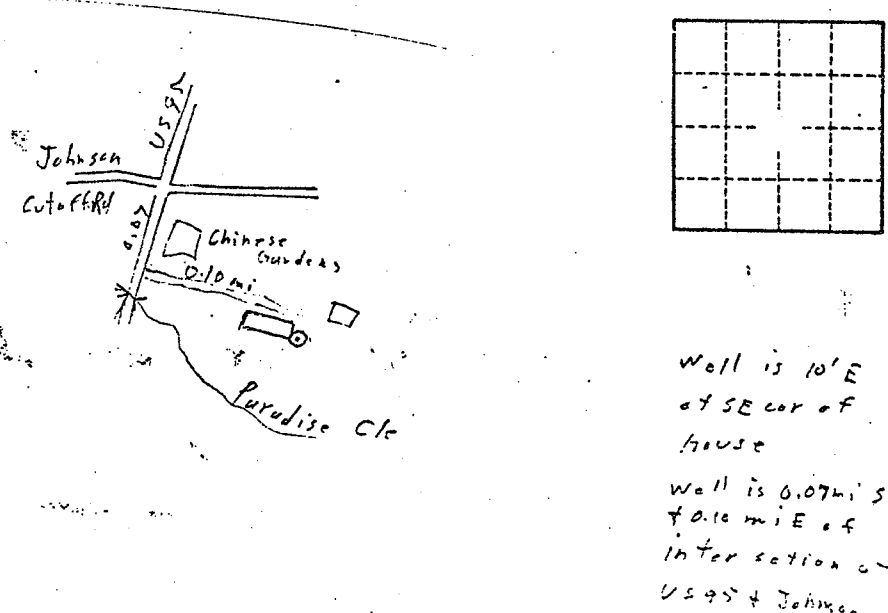 US 95
Johnson
Cutoff Rd
0.07
Chinese
Gardens
0.10 mi
Paradise Ck
Well is 10' E
of SE cor of
house
Well is 0.07 mi S
+ 0.10 mi E of
intersction o
US 95 + Johnson